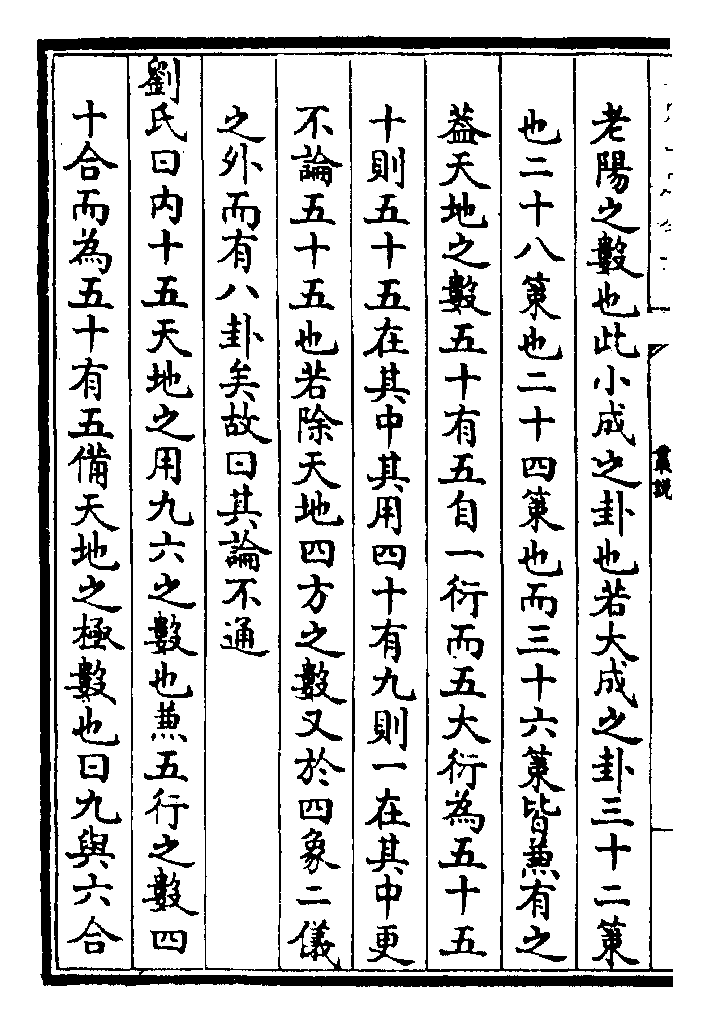 叢說
老陽之數也此小成之卦也若大成之卦三十二策
也二十八策也二十四策也而三十六策皆兼有之
葢天地之數五十有五自一衍而五大衍為五十五
十則五十五在其中其用四十有九則一在其中更
不論五十五也若除天地四方之數又於四象二儀
之外而有八卦矣故曰其論不通
劉氏曰内十五天地之用九六之數也兼五行之數四
十合而為五十有五備天地之極數也曰九與六合